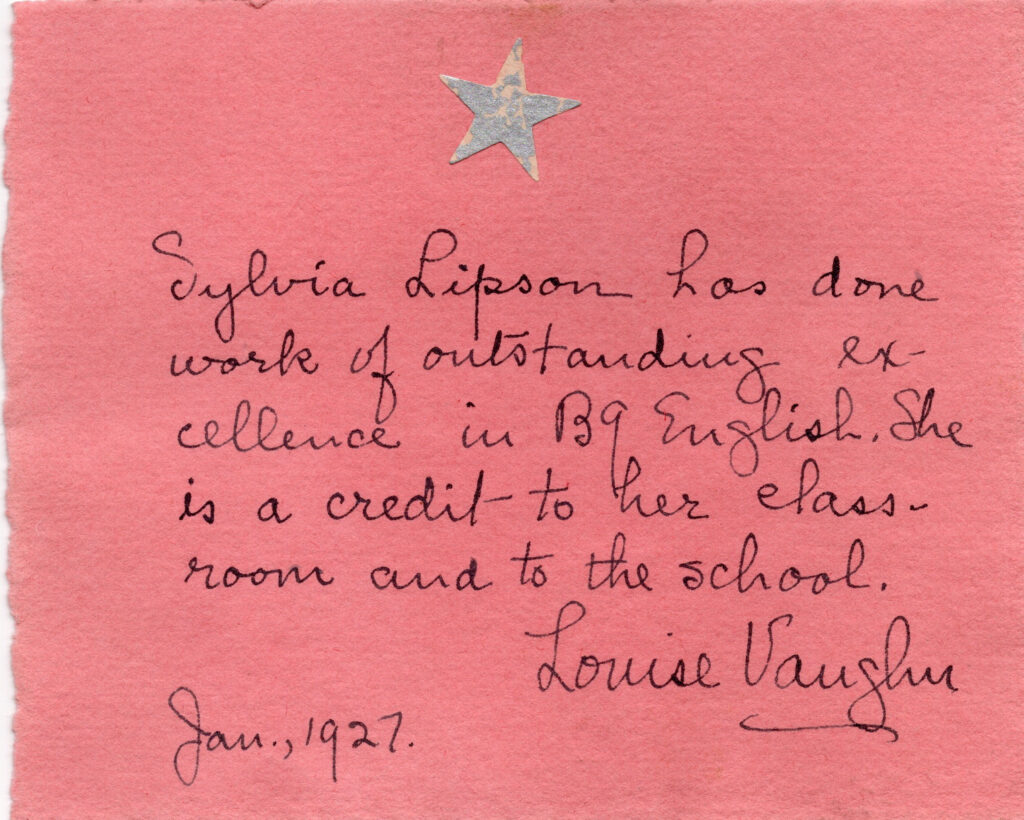 Sylvia Lipson has done
work of outstanding ex-
cellence in B9 English. She
is a credit to her class-
room and to the school.
Louise Vaughn
Jan., 1927.